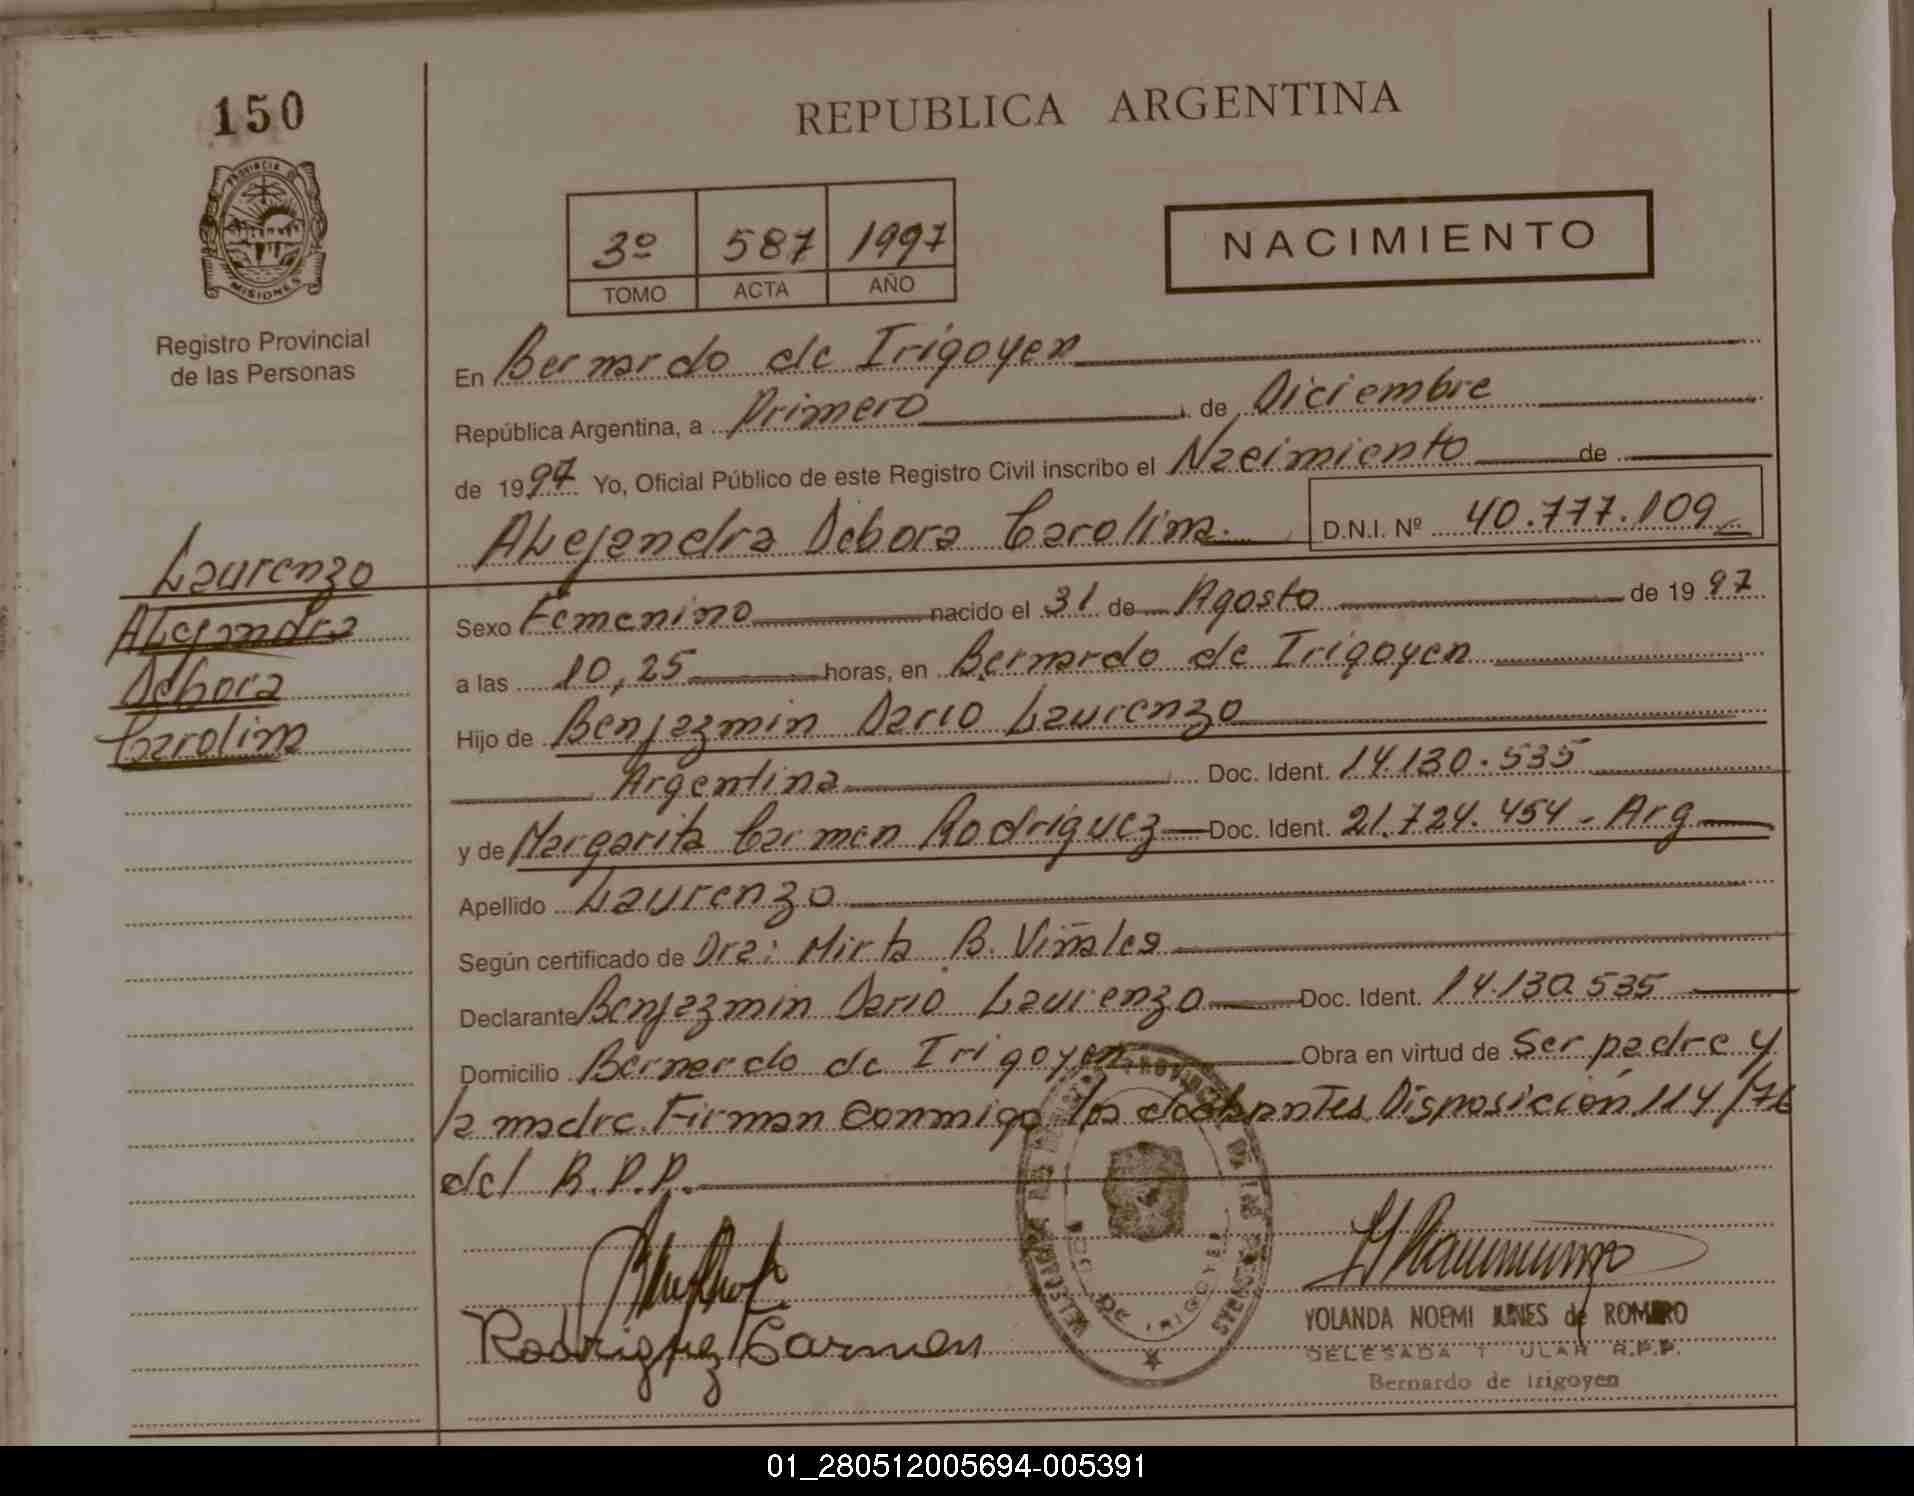 150
PROVINCIA DE
MISIONES
Registro Provincial
de las Personas
REPUBLICA ARGENTINA
3º 587 1997
TOMO ACTA AÑO
NACIMIENTO
En Bernardo de Irigoyen
República Argentina, a Primero de Diciembre
de 1997 Yo, Oficial Público de este Registro Civil inscribo el Nacimiento de
ALejandra Debora Carolina. D.N.I. Nº 40.777.109
Laurenzo
ALejandra
Debora
Carolina
Sexo Femenino nacido el 31 de Agosto de 1997
a las 10,25 horas, en Bernardo de Irigoyen
Hijo de Benjazmin Dario Laurenzo
Argentina Doc. Ident. 14.130.535
y de Margarita Carmen Rodriguez Doc. Ident. 21.724.454 - Arg
Apellido Laurenzo
Según certificado de Dra: Mirta B. Viñales
Declarante Benjazmin Dario Laurenzo Doc. Ident. 14.130.535
Domicilio Bernardo de Irigoyen Obra en virtud de Ser padre y
la madre. Firman conmigo los Disposición 114/76
del R.P.P.
DE IRIGOYEN
Rodriguez Carmen
YOLANDA NOEMI de ROMERO
R.P.P.
Bernardo de irigoyen
01_280512005694-005391